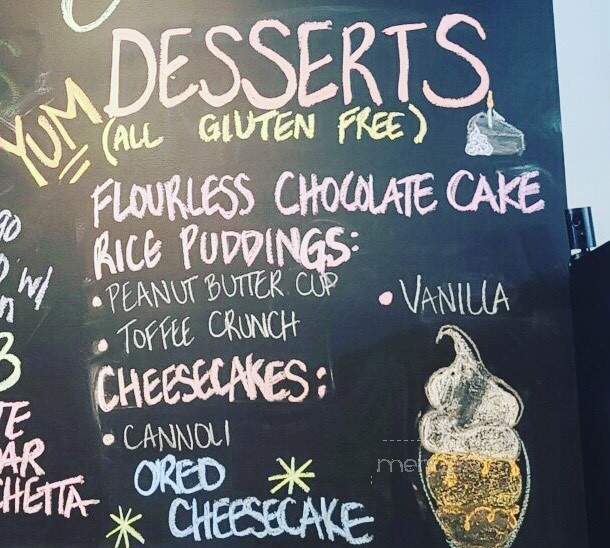 DESSERTS
YUM
(ALL GLUTEN FREE)
FLOURLESS CHOCOLATE CAKE
RICE PUDDINGS:
• PEANUT BUTTER CUP • VANILLA
• TOFFEE CRUNCH
CHEESECAKES:
• CANNOLI
OREO
CHEESECAKE
W/
CHETTA